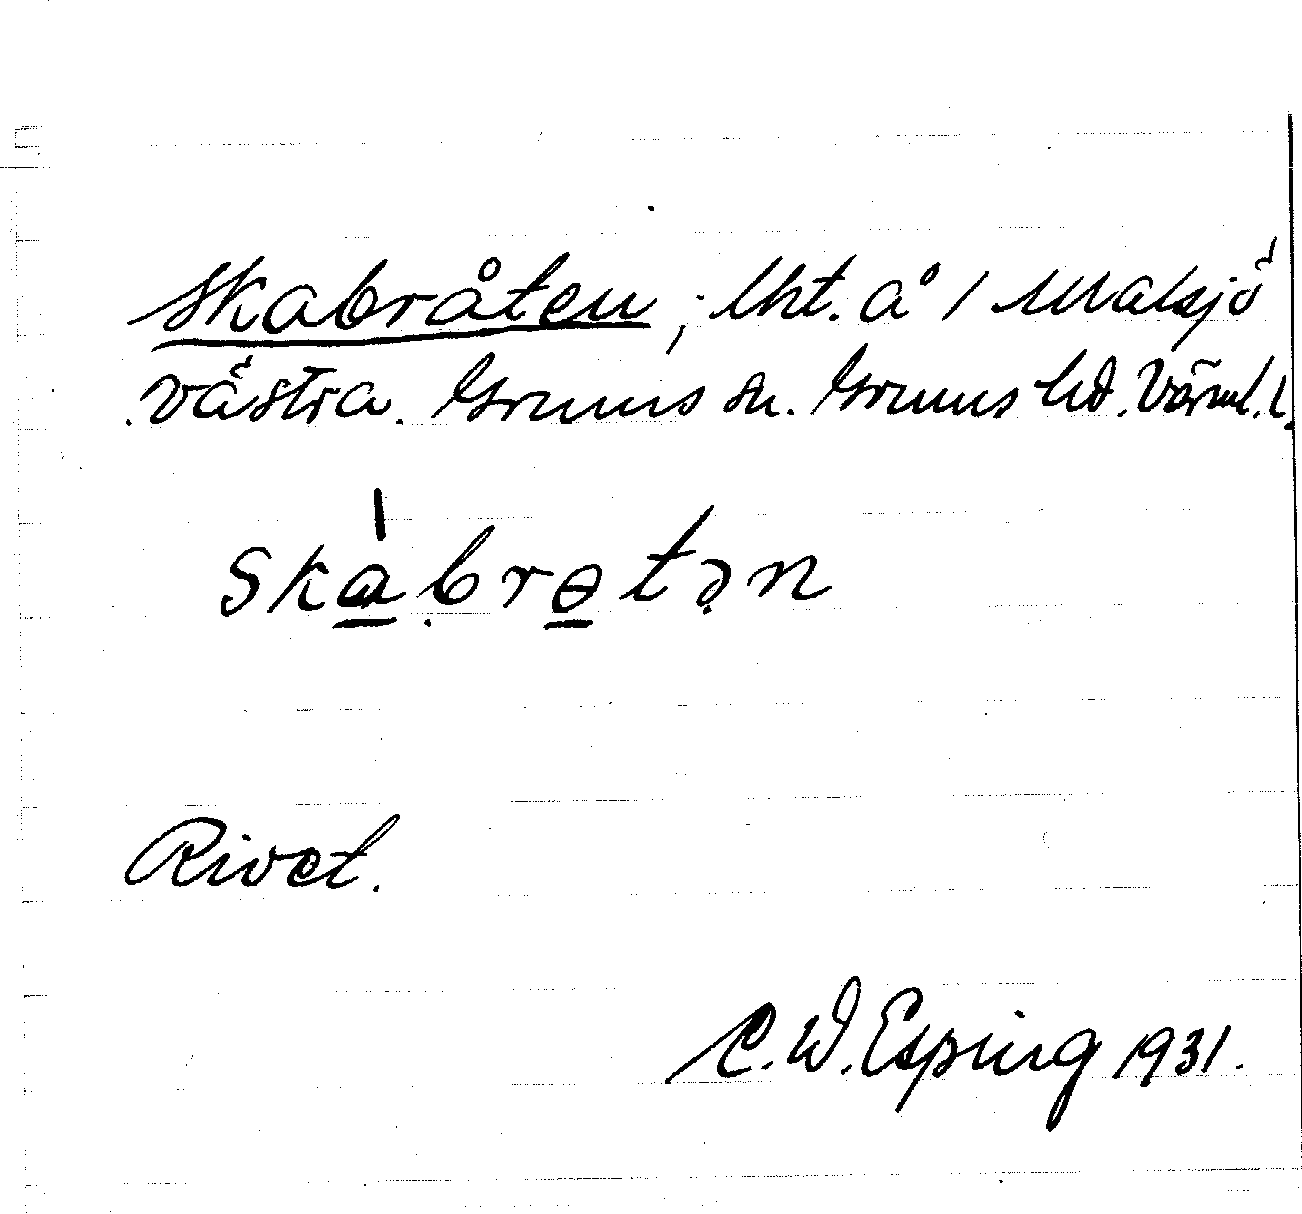 Skabråten, lht. å / Maksjö
västra. Grums sn. Grums hd. Värml. l.
skàbrɵtən
Rivet.
C. W. Esping 1931.